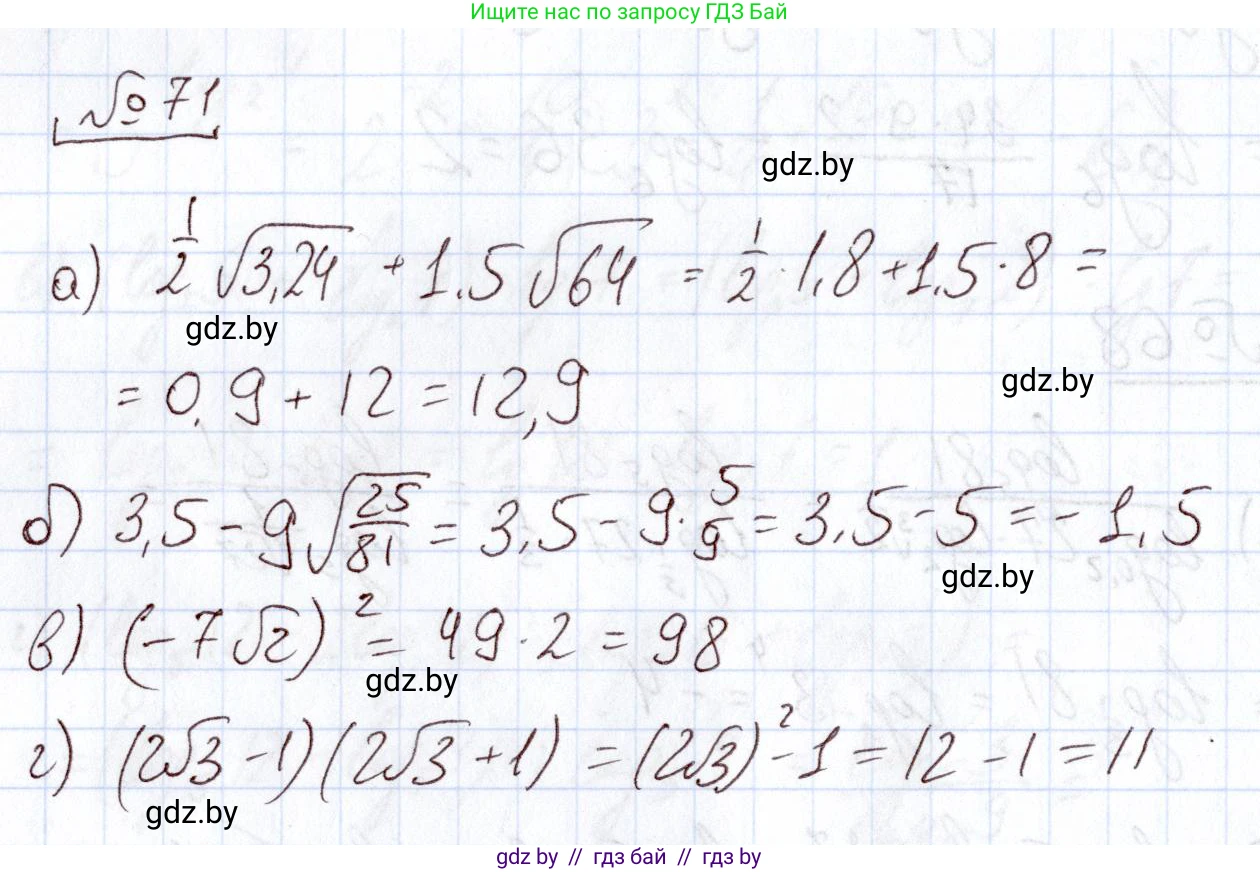 Ищите нас по запросу ГДЗ Бай
№ 71
gdz.by
а) 1/2 √3,24 + 1.5 √64 = 1/2 · 1,8 + 1,5 · 8 =
gdz.by
= 0,9 + 12 = 12,9
gdz.by
б) 3,5 - 9 √25/81 = 3,5 - 9 · 5/9 = 3,5 - 5 = - 1,5
gdz.by
в) (-7√2)² = 49 · 2 = 98
gdz.by
г) (2√3 - 1)(2√3 + 1) = (2√3)² - 1 = 12 - 1 = 11
gdz.by
gdz by // гдз бай // гдз by